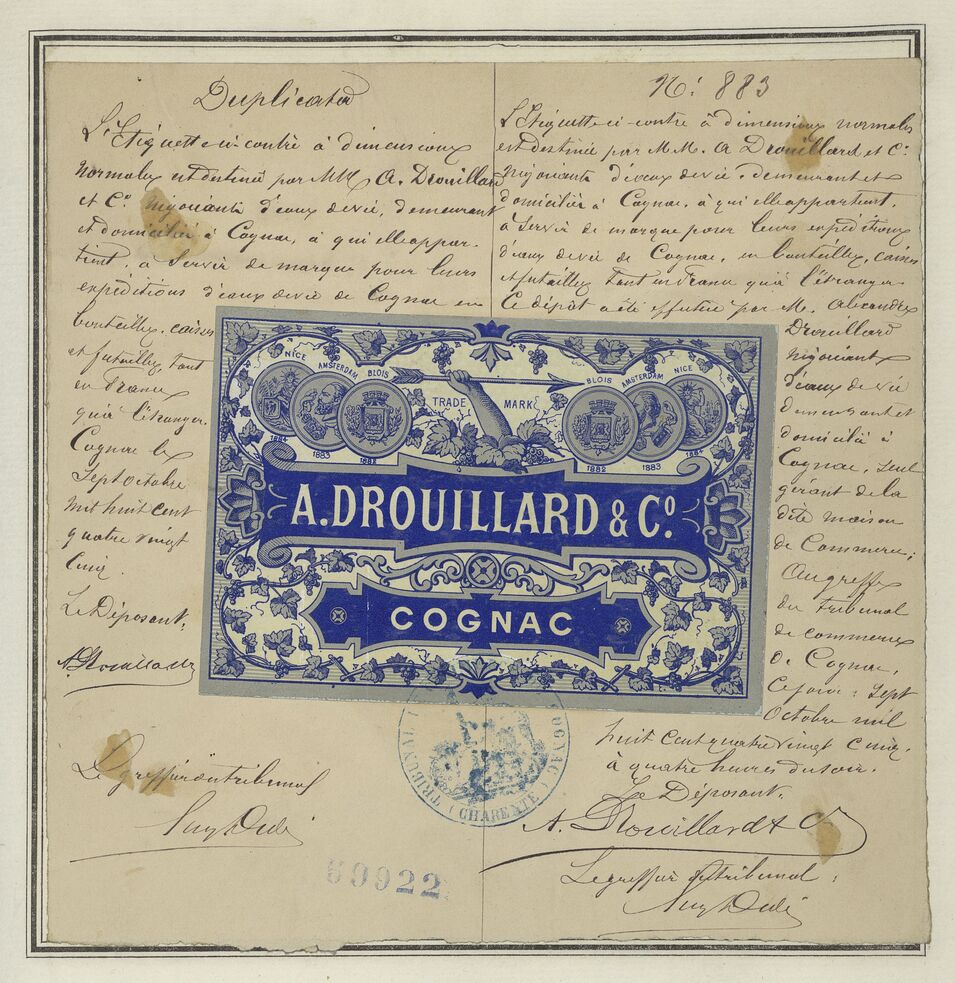 Duplicata
L'Etiquette ci-contre à dimensions
normales est destinée par MM A. Drouillard
et Cº. négociants d'eaux de vie, demeurant
et domiciliés à Cognac, à qui elle appar-
tient, à servir de marque pour leurs
expéditions d'eaux de vie de Cognac en
bouteilles, caisses
et futailles, tant
en France
qu'à l'étranger.
Cognac le
Sept Octobre
mil huit cent
quatre vingt
Cinq.
Le Déposant,
A. Drouillard
Le greffier du tribunal
Nº. 883
L'Etiquette ci-contre à dimensions normales
est destinée par M.M. A Drouillard et Cº
négociants d'eaux de vie, demeurant et
domiciliés à Cognac, à qui elle appartient,
à servir de marque pour leurs expéditions
d'eaux de vie de Cognac, en bouteilles, caisses
et futailles tant en France qu'à l'étranger
Ce dépôt a été effectué par M. Alexandre
Drouillard
négociant
d'eaux de vie
demeurant et
domicilié à
Cognac, seul
gérant de la
dite maison
de Commerce;
Au greffe
du tribunal
de commerce
de Cognac,
Ce jour: Sept
Octobre mil
huit cent quatre vingt cinq,
à quatre heures du soir.
Le Déposant,
A. Drouillard & Cº
Le greffier du tribunal:
NICE
AMSTERDAM
BLOIS
1884
1883
1882
TRADE MARK
BLOIS
AMSTERDAM
NICE
1882
1883
1884
A. DROUILLARD & Cº.
COGNAC
TRIBUNAL
COGNAC
(CHARENTE)
50922